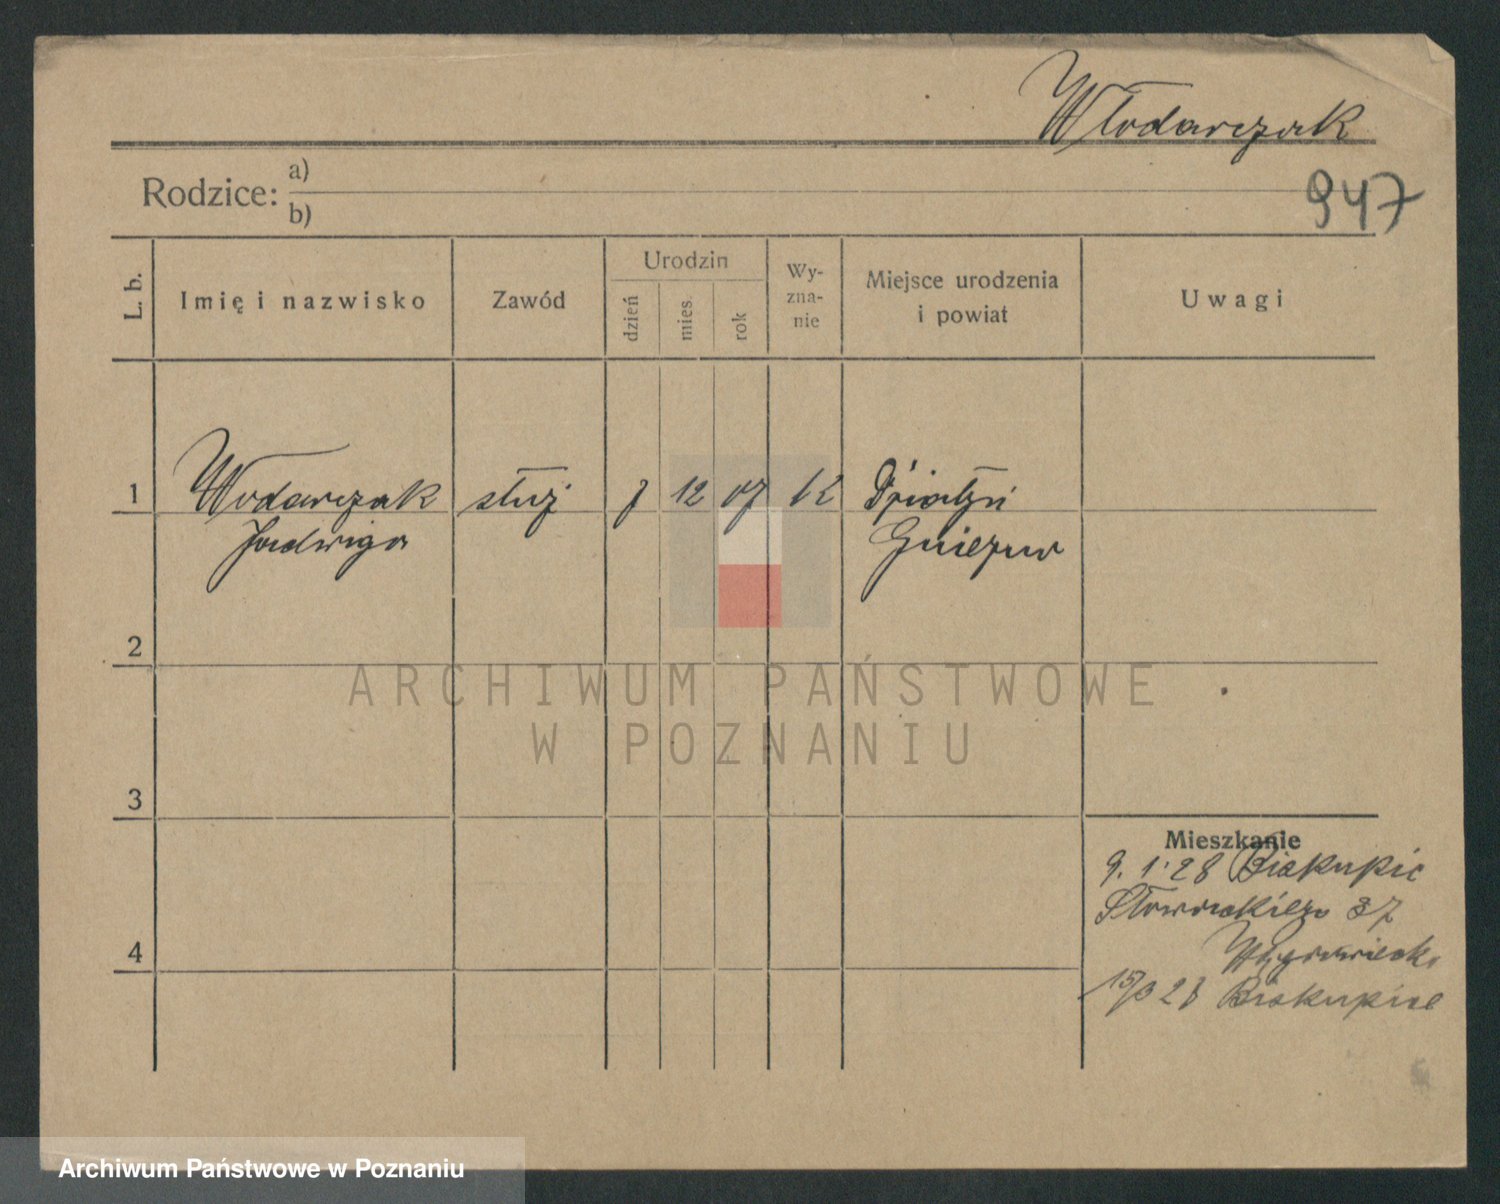 Włodarczak
Rodzice: a)
b)
947
L. b.
Imię i nazwisko
Zawód
Urodzin
dzień
mies.
rok
Wy-
zna-
nie
Miejsce urodzenia
i powiat
Uwagi
1
Włodarczak
Jadwiga
służ
7 12 07
k
Gniezno
2
3
4
ARCHIWUM PAŃSTWOWE
W POZNANIU
Mieszkanie
9. 1. 28 Biskupic
Słowackiego 37
15/3 28 Biskupice
Archiwum Państwowe w Poznaniu